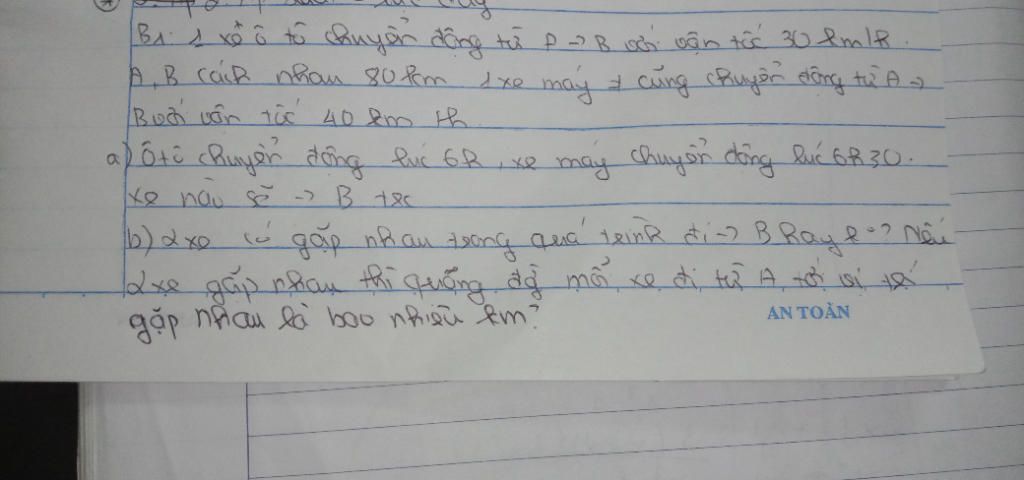 B1: 1 xe ô tô chuyển động từ A → B với vận tốc 30 km/h.
A, B cách nhau 80 km 1 xe máy # cũng chuyển động từ A →
B với vận tốc 40 km/h
a) Ô tô chuyển động lúc 6h, xe máy chuyển động lúc 6h30.
xe nào sẽ → B trc
b) 2 xe có gặp nhau trong quá trình đi → B hay ko? Nếu
2 xe gặp nhau thì quãng đg mỗi xe đi từ A tới vị trí
gặp nhau là bao nhiêu km?
AN TOÀN